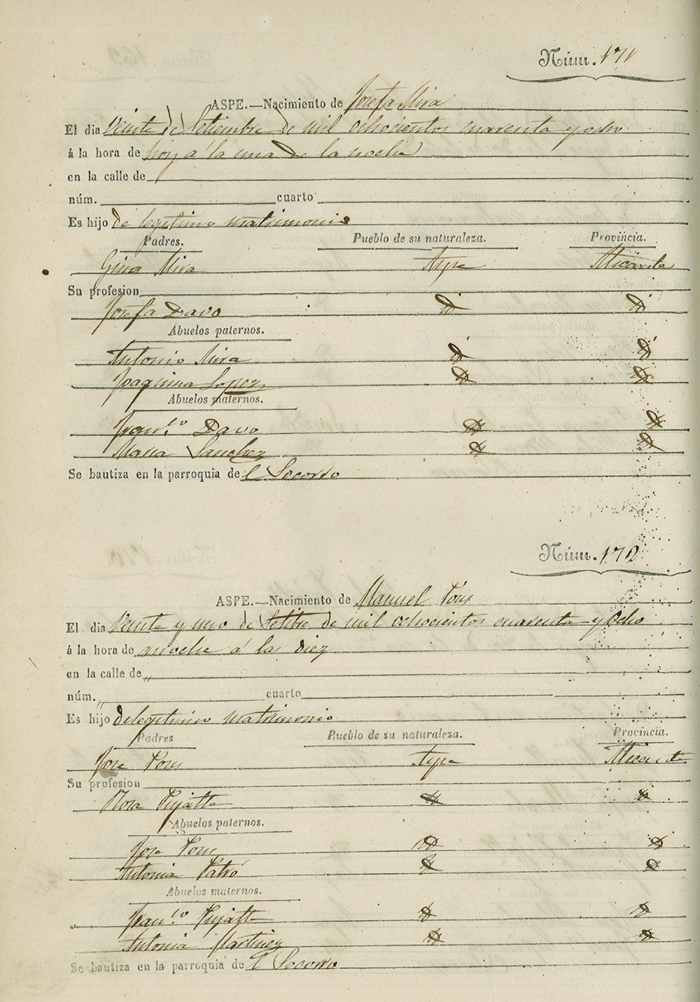 Núm. 171
ASPE.—Nacimiento de Josefa Mira
El dia veinte de Setiembre de mil ochocientos cuarenta y ocho
á la hora de hoy a la una de la noche
en la calle de
núm. cuarto
Es hijo de legitimo matrimonio
Padres. Pueblo de su naturaleza. Provincia.
Gines Mira Aspe Alicante
Su profesion
Josefa Davo
Abuelos paternos.
Antonio Mira
Joaquina Lopez
Abuelos maternos.
Fran.co Davo
Maria Sanchez
Se bautiza en la parroquia de el Socorro
Núm. 172
ASPE.—Nacimiento de Manuel Pons
El dia veinte y uno de Setbre de mil ochocientos cuarenta y ocho
á la hora de anoche á las diez
en la calle de
núm. cuarto
Es hijo de legitimo matrimonio
Padres Pueblo de su naturaleza. Provincia.
Jose Pons Aspe Alicante
Su profesion
Abuelos paternos.
Jose Pons
Antonia
Abuelos maternos.
Fran.co
Antonia Martinez
Se bautiza en la parroquia de el Socorro